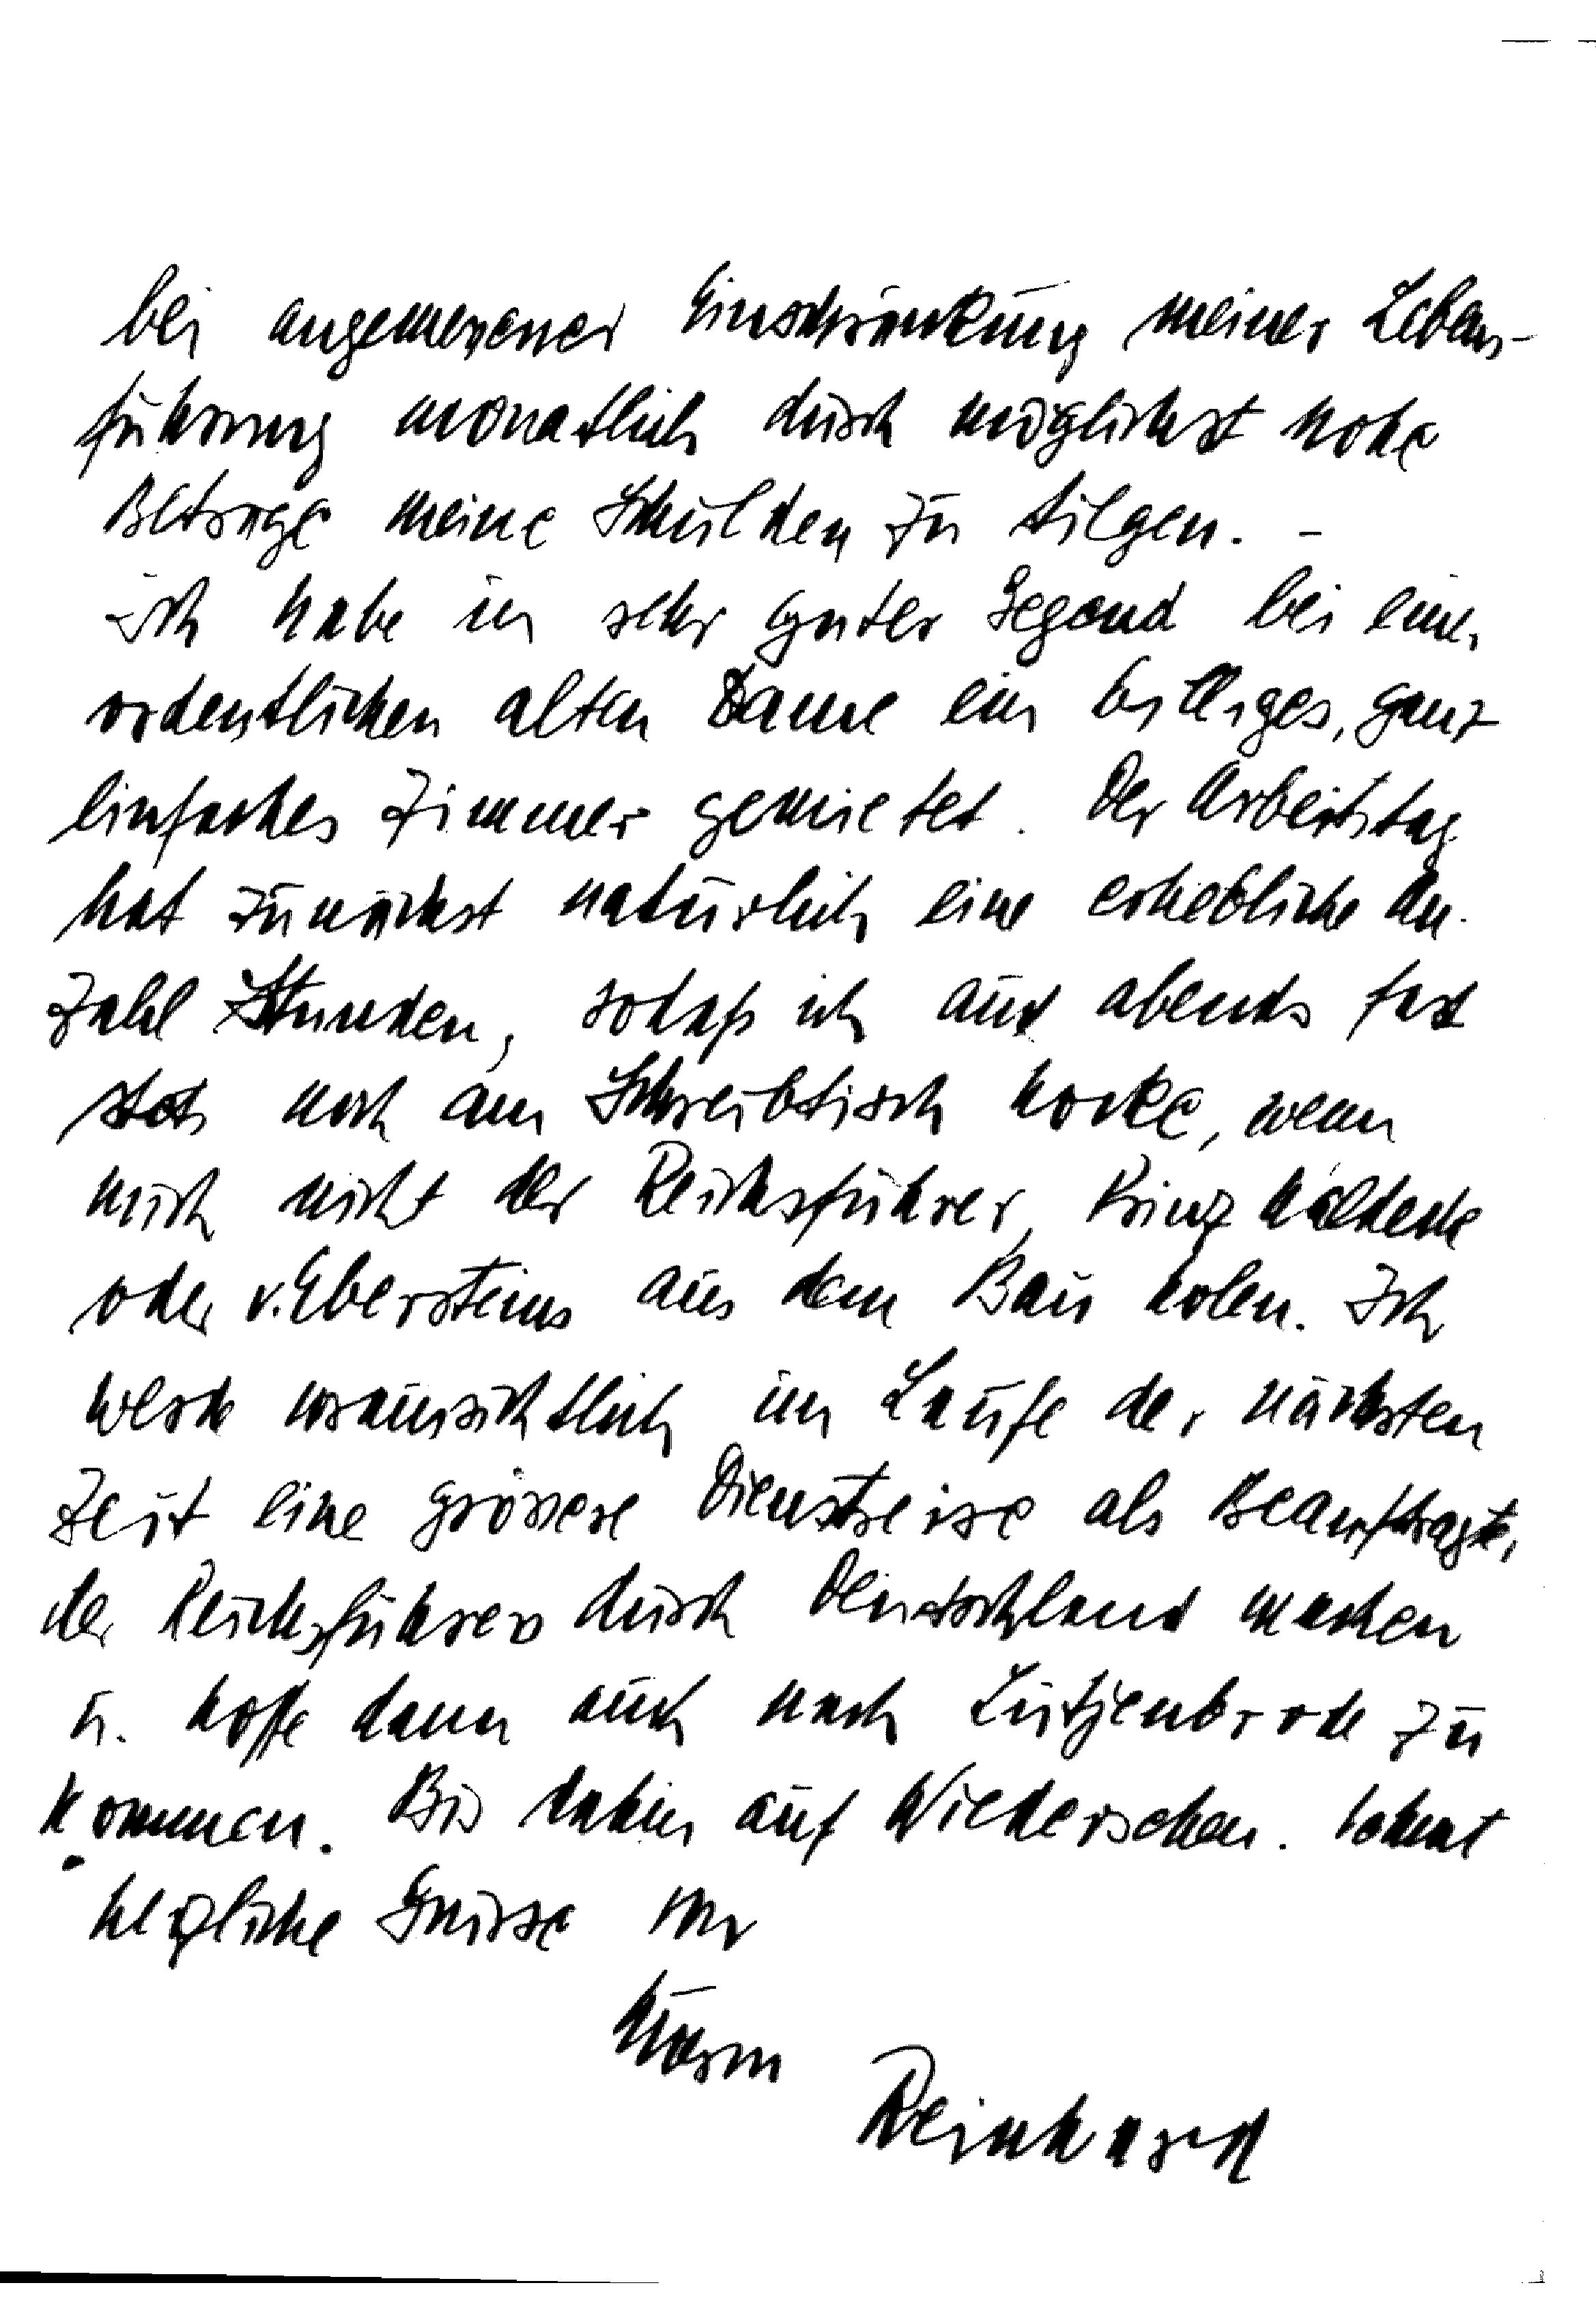 bei angemessener Einschränkung meiner Lebens-
führung monatlich durch möglichst hohe
Beträge meine Schulden zu tilgen. -
Ich habe in sehr guter Gegend bei einer
ordentlichen alten Dame ein billiges, ganz
einfaches Zimmer gemietet. Der Arbeitstag
hat zunächst natürlich eine erhebliche An-
zahl Stunden, sodaß ich auch abends fast
stets noch am Schreibtisch hocke, wenn
mich nicht der Reichsführer, Prinz Waldeck
oder v. Ebersteins aus dem Bau holen. Ich
werde voraussichtlich im Laufe der nächsten
Zeit eine grössere Dienstreise als Beauftragter
des Reichsführers durch Deutschland machen
u. hoffe dann auch nach Lütjenbrode zu
kommen. Bis dahin auf Wiedersehen.
herzliche Grüsse Ihr
Reinhard